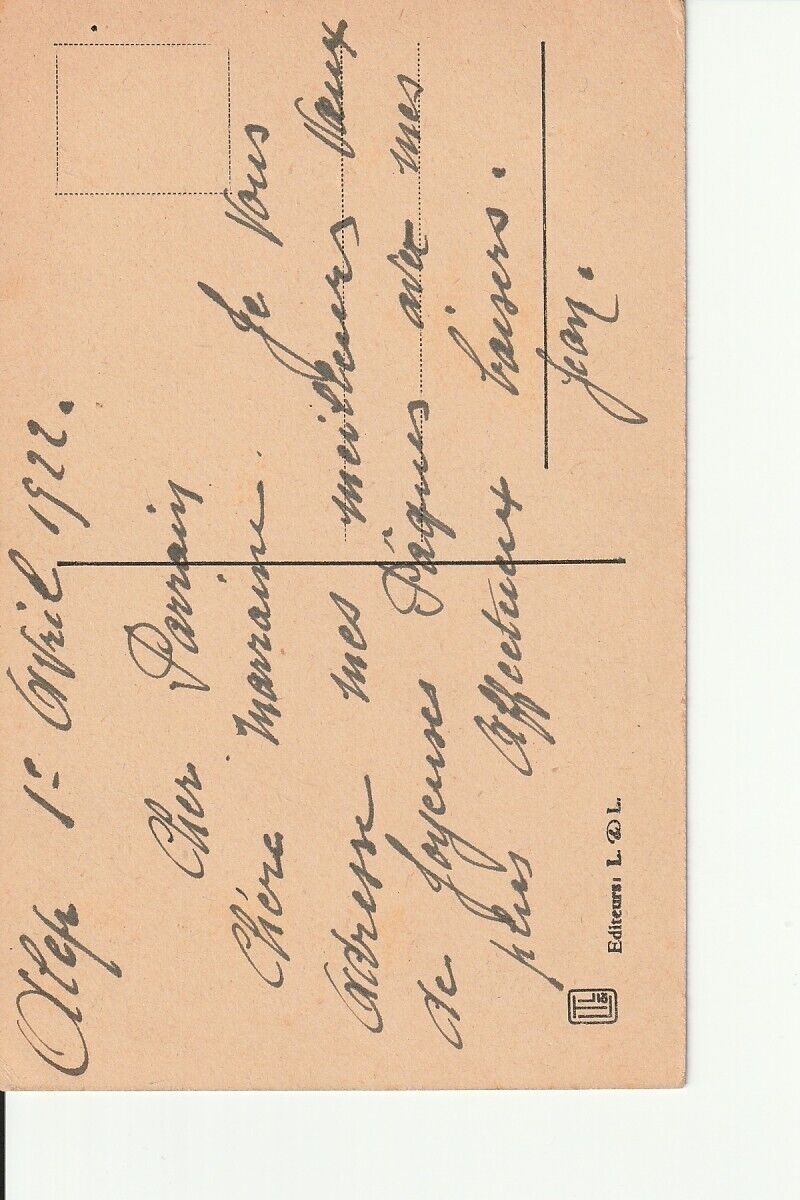 Alep 1er Avril 1922.
Cher Parrain
Chère Marraine. Je vous
adresse mes meilleurs vœux
de Joyeuses Pâques avec mes
plus affectueux baisers.
Jean.
Editeurs: L. & L.
L & L